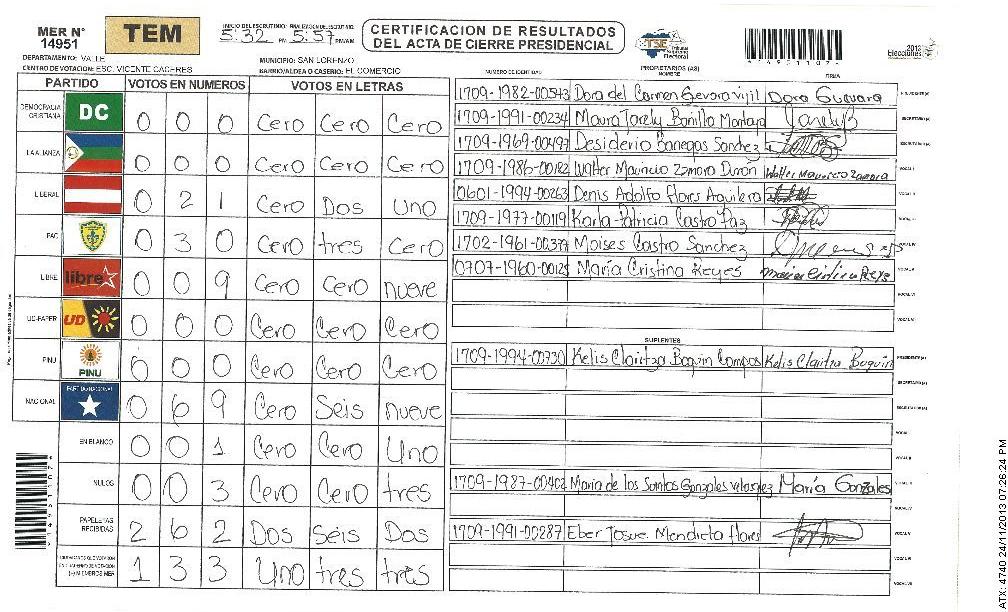 MER N° 14951
TEM
INICIO DEL ESCRUTINIO: 5:32 PM FINALIZACION DEL ESCRUTINIO: 5:57 PM/AM
CERTIFICACION DE RESULTADOS
DEL ACTA DE CIERRE PRESIDENCIAL
TSE Tribunal Supremo Electoral
2013 Elecciones
DEPARTAMENTO: VALLE
MUNICIPIO: SAN LORENZO
CENTRO DE VOTACION: ESC. VICENTE CACERES
BARRIO/ALDEA O CASERIO: EL COMERCIO
PARTIDO VOTOS EN NUMEROS VOTOS EN LETRAS
DEMOCRACIA CRISTIANA DC 0 0 0 Cero Cero Cero
LA ALIANZA 0 0 0 Cero Cero Cero
LIBERAL 0 2 1 Cero Dos Uno
PAC 0 3 0 Cero tres Cero
LIBRE libre 0 0 9 Cero Cero nueve
UD-FAPER UD 0 0 0 Cero Cero Cero
PINU PINU 0 0 0 Cero Cero Cero
NACIONAL PARTIDO NACIONAL 0 6 9 Cero Seis nueve
EN BLANCO 0 0 1 Cero Cero Uno
NULOS 0 0 3 Cero Cero tres
PAPELETAS RECIBIDAS 2 6 2 Dos Seis Dos
1 3 3 Uno tres tres
NUMERO DE IDENTIDAD PROPIETARIOS (AS) NOMBRE FIRMA
1709-1982-00543 Dora del Carmen Gevara Vijil Dora Guevara
1709-1991-00234 Maura Yarely Bonilla Montoya Yarely B
1709-1969-00497 Desiderio Banegas Sanchez
1709-1986-00182 Walter Mauricio Zamora Duron Walter Mauricio Zamora
0601-1994-00263 Denis Adolfo Flores Aguilera
1709-1977-00119 Karla Patricia Castro Paz
1702-1961-00379 Moises Castro Sanchez
0707-1960-00125 María Cristina Reyes Maria Cristina Reyes
SUPLENTES
1709-1994-00730 Kelis Claritza Boquin Campos Kelis Claritza Boquin
1709-1987-00402 Maria de los Santos Gonzales Velasquez María Gonzales
1709-1991-00287 Eber Josue Mendieta Flores
ATX: 4740 24/11/2013 07:26:24 PM